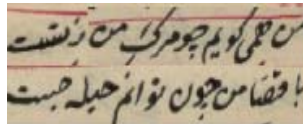 من چه گویم چو مرگ من زتست
با قضا من چون توانم حیله جست